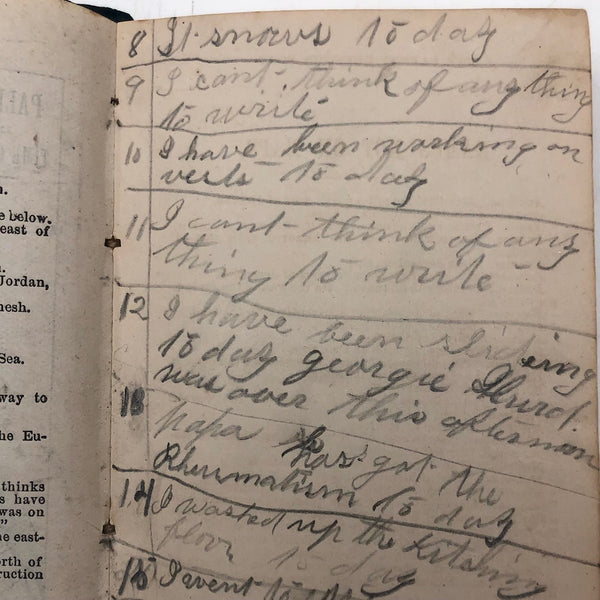 n.
e below.
east of
n.
Jordan,
nesh.
Sea.
way to
he Eu-
thinks
s have
was on
"
he east-
orth of
ruction
8 It snows to day
9 I cant think of any thing
to write
10 I have been working on
vests to day
11 I cant think of any
thing to write
12 I have been slideing
to day georgie Hurd
was over this afternoon
13 papa has got the
Rheumatism to day
14 I washed up the kitching
floor to day
15 I went to